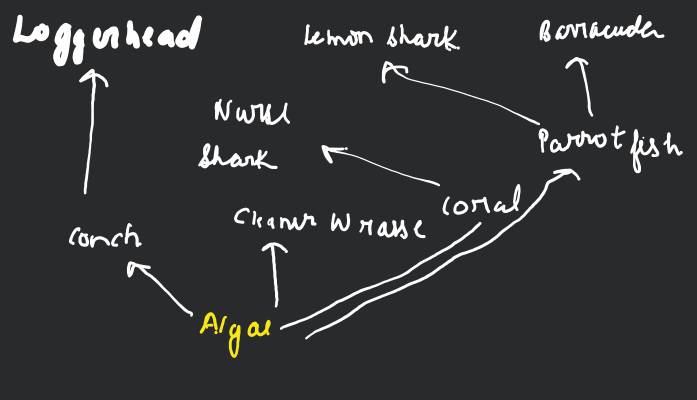 Loggerhead
Lemon shark
Barracuda
Nurse
Shark
Parrot fish
Coral
Cleaner Wrasse
Conch
Algae